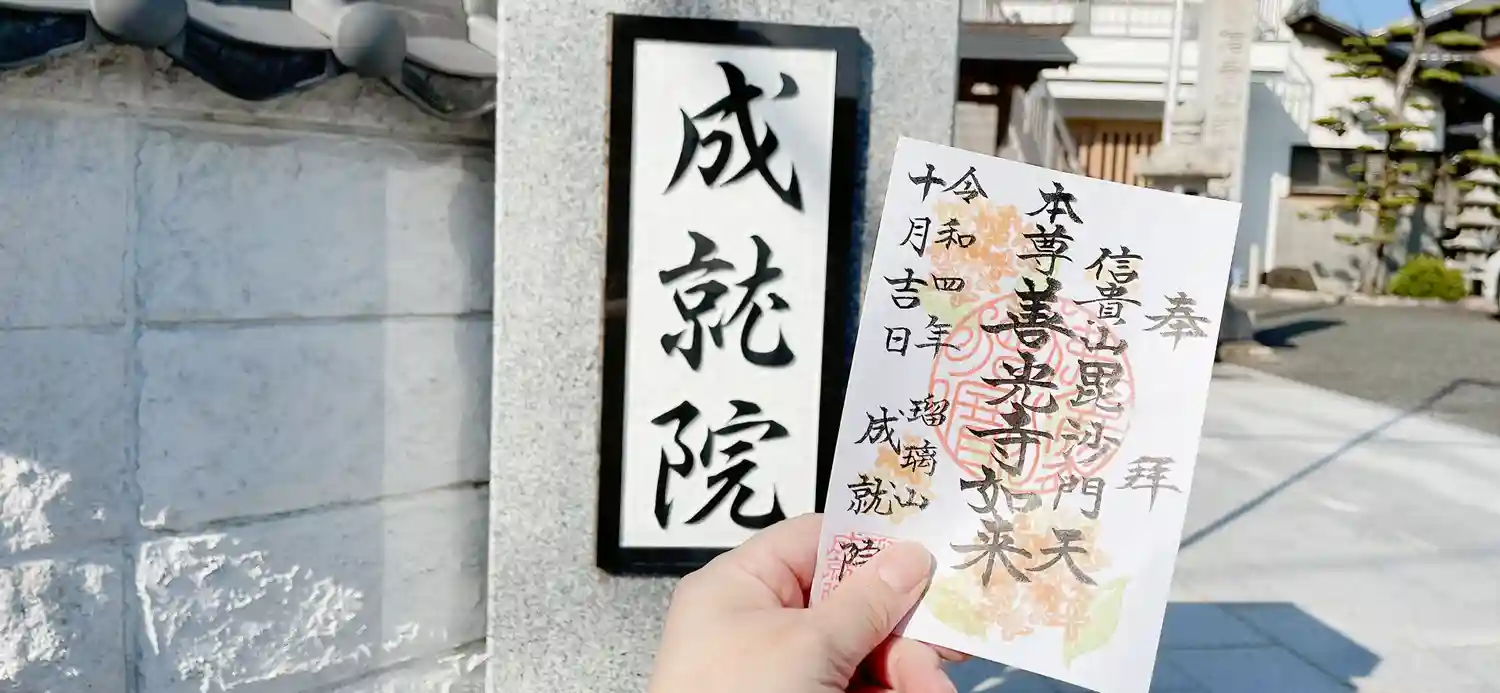 成就院
奉拝
信貴山毘沙門天
本尊善光寺如来
令和四年
十月吉日
瑠璃山
成就院